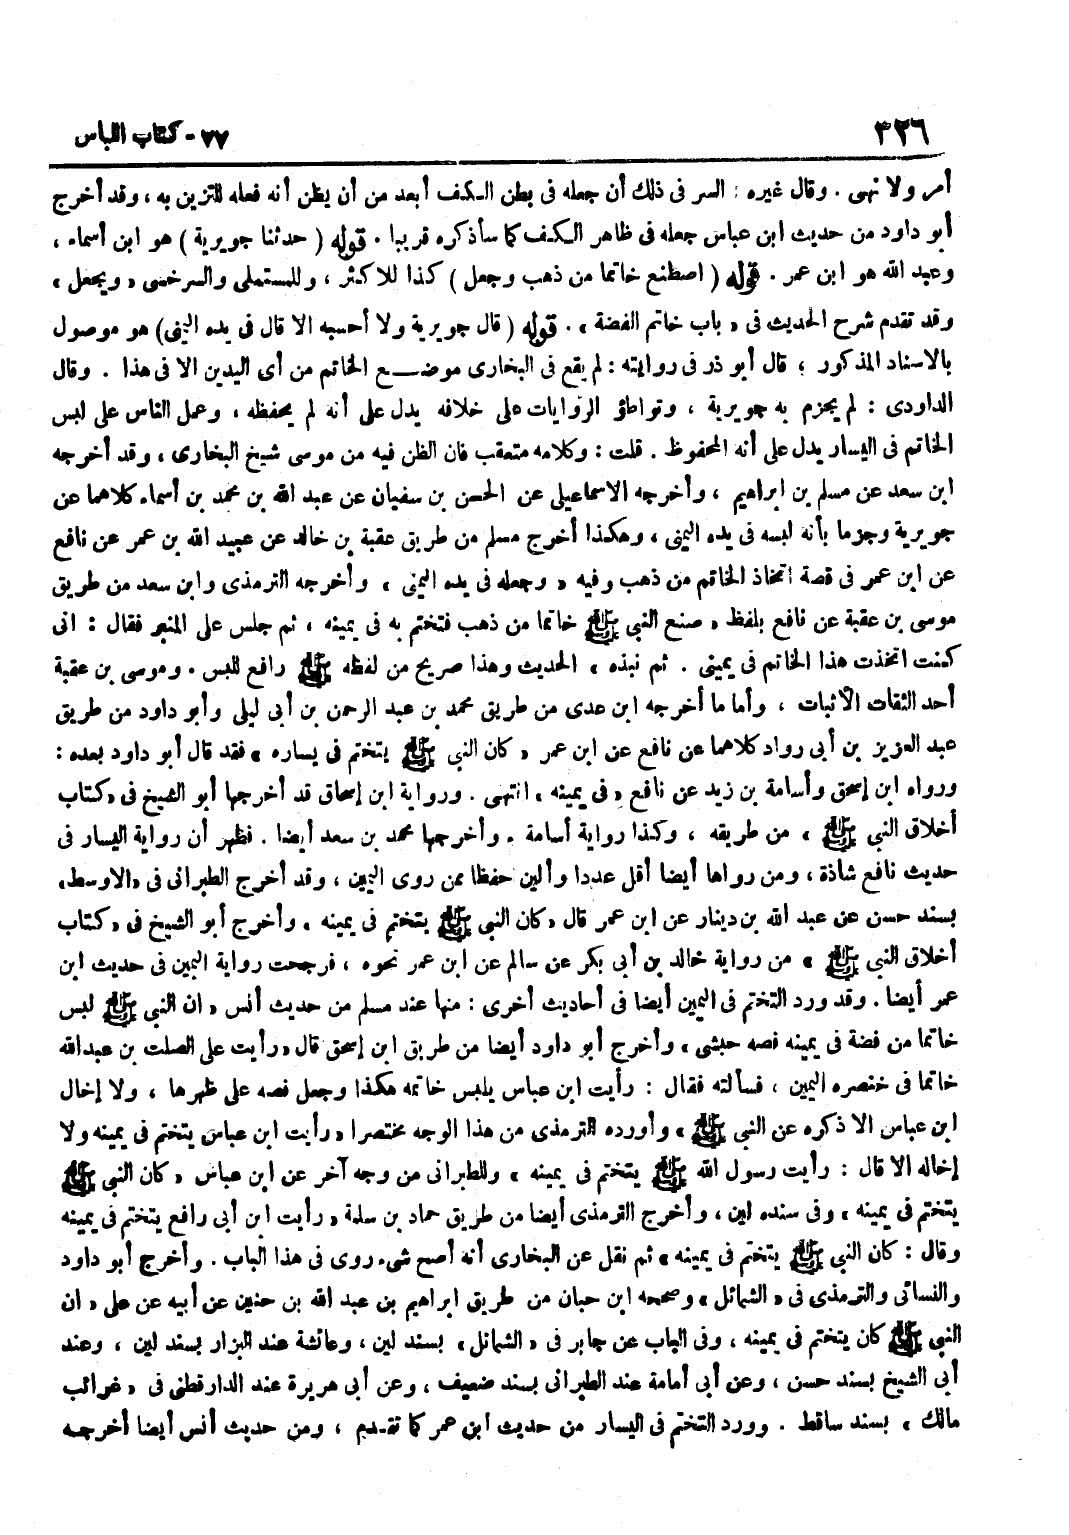 ٣٢٦
٧٧ - كتاب اللباس
أمر ولا نهى . وقال غيره : السر فى ذلك أن جعله فى بطن الكف أبعد من أن يظن أنه فعله للتزين به ، وقد أخرج
أبو داود من حديث ابن عباس جعله فى ظاهر الكف كما سأذكره قريبا . قوله ( حدثنا جويرية ) هو ابن أسماء ،
وعبد الله هو ابن عمر . قوله ( اصطنع خاتما من ذهب وجعل ) كذا للاكثر ، وللمستملى والسرخسى « ويجعل »
وقد تقدم شرح الحديث فى « باب خاتم الفضة » . قوله ( قال جويرية ولا أحسبه الا قال فى يده اليمنى ) هو موصول
بالاسناد المذكور ؛ قال أبو ذر فى روايته : لم يقع فى البخارى موضع الخاتم من أى اليدين الا فى هذا . وقال
الداودى : لم يجزم به جويرية ، وتواطؤ الروايات على خلافه يدل على أنه لم يحفظه ، وعمل الناس على لبس
الخاتم فى اليسار يدل على أنه المحفوظ . قلت : وكلامه متعقب فان الظن فيه من موسى شيخ البخارى ، وقد أخرجه
ابن سعد عن مسلم بن ابراهيم ، وأخرجه الاسماعيلى عن الحسن بن سفيان عن عبد الله بن محمد بن أسماء كلاهما عن
جويرية وجزما بأنه لبسه فى يده اليمنى ، وهكذا أخرج مسلم من طريق عقبة بن خالد عن عبيد الله بن عمر عن نافع
عن ابن عمر فى قصة اتخاذ الخاتم من ذهب وفيه « وجعله فى يده اليمنى ، وأخرجه الترمذى وابن سعد من طريق
موسى بن عقبة عن نافع بلفظ « صنع النبي ﷺ خاتما من ذهب فتختم به فى يمينه ، ثم جلس على المنبر فقال : انى
كنت اتخذت هذا الخاتم فى يمينى . ثم نبذه » الحديث وهذا صريح من لفظه ﷺ رافع للبس . وموسى بن عقبة
أحد الثقات الأثبات ، وأما ما أخرجه ابن عدى من طريق محمد بن عبد الرحمن بن أبى ليلى وأبو داود من طريق
عبد العزيز بن أبى رواد كلاهما عن نافع عن ابن عمر « كان النبي ﷺ يتختم فى يساره » فقد قال أبو داود بعده :
ورواه ابن إسحق وأسامة بن زيد عن نافع « فى يمينه » انتهى . ورواية ابن إسحاق قد أخرجها أبو الشيخ فى « كتاب
أخلاق النبي ﷺ » من طريقه ، وكذا رواية أسامة . وأخرجها محمد بن سعد أيضا . فظهر أن رواية اليسار فى
حديث نافع شاذة ، ومن رواها أيضا أقل عددا وألين حفظا ممن روى اليمين ، وقد أخرج الطبرانى فى « الاوسط »
بسند حسن عن عبد الله بن دينار عن ابن عمر قال « كان النبي ﷺ يتختم فى يمينه » وأخرج أبو الشيخ فى « كتاب
أخلاق النبي ﷺ » من رواية خالد بن أبى بكر عن سالم عن ابن عمر نحوه ، فرجحت رواية اليمين فى حديث ابن
عمر أيضا . وقد ورد التختم فى اليمين أيضا فى أحاديث أخرى : منها عند مسلم من حديث أنس « ان النبي ﷺ لبس
خاتما من فضة فى يمينه فصه حبشى » وأخرج أبو داود أيضا من طريق ابن إسحق قال « رأيت على الصلت بن عبدالله
خاتما فى خنصره اليمين ، فسألته فقال : رأيت ابن عباس يلبس خاتمه هكذا وجعل فصه على ظهرها ، ولا إخال
ابن عباس الا ذكره عن النبي ﷺ » وأورده الترمذى من هذا الوجه مختصرا « رأيت ابن عباس يتختم فى يمينه ولا
إخاله الا قال : رأيت رسول الله ﷺ يتختم فى يمينه » وللطبرانى من وجه آخر عن ابن عباس « كان النبي ﷺ
يتختم فى يمينه » وفى سنده لين ، وأخرج الترمذى أيضا من طريق حماد بن سلمة « رأيت ابن أبى رافع يتختم فى يمينه
وقال : كان النبي ﷺ يتختم فى يمينه » ثم نقل عن البخارى أنه أصح شىء روى فى هذا الباب . وأخرج أبو داود
والنسائى والترمذى فى « الشمائل » وصححه ابن حبان من طريق ابراهيم بن عبد الله بن حنين عن أبيه عن على « ان
النبي ﷺ كان يتختم فى يمينه ، وفى الباب عن جابر فى « الشمائل » بسند لين ، وعائشة عند البزار بسند لين ، وعند
أبى الشيخ بسند حسن ، وعن أبى أمامة عند الطبرانى بسند ضعيف ، وعن أبى هريرة عند الدارقطنى فى « غرائب
مالك » بسند ساقط . وورد التختم فى اليسار من حديث ابن عمر كما تقدم ، ومن حديث أنس أيضا أخرجه